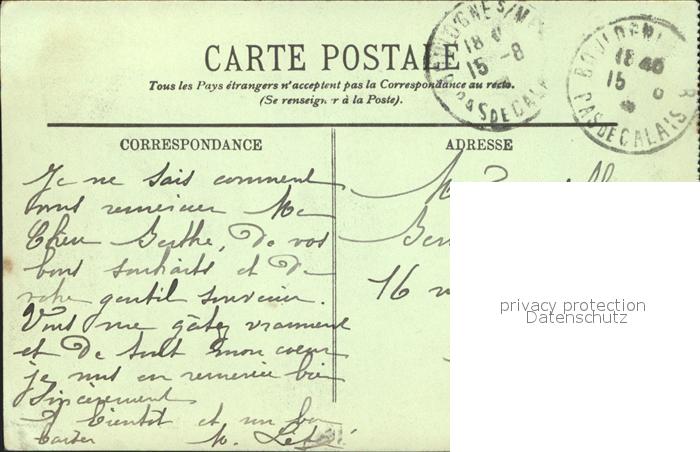 CARTE POSTALE
Tous les Pays étrangers n'acceptent pas la Correspondance au recto.
(Se renseigner à la Poste).
CORRESPONDANCE
ADRESSE
Je ne sais comment
vous remercier Ma
Chère Berthe, de vos
bons souhaits et de
votre gentil souvenir.
Vous me gâtez vraiment
et de tout mon coeur
je vous en remercie bien
sincèrement
A bientôt et un bon
16
BOULOGNE S/MER
18
15 -8
PAS DE CALAIS
BOULOGNE
18 40
15
PAS DE CALAIS
privacy protection
Datenschutz